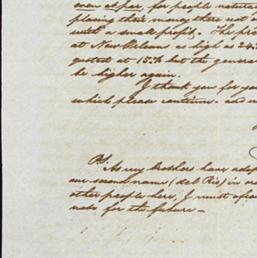 even at par for people natura
placing their money there not o
with a small profit. The pri
at New Orleans as high as 24
quoted at 15¾ but the genera
be higher again.
I thank you for yo
which please continue. and
PS.
As my brothers have adop
our second name (del Rio) in or
other people here, I must
note for the future –